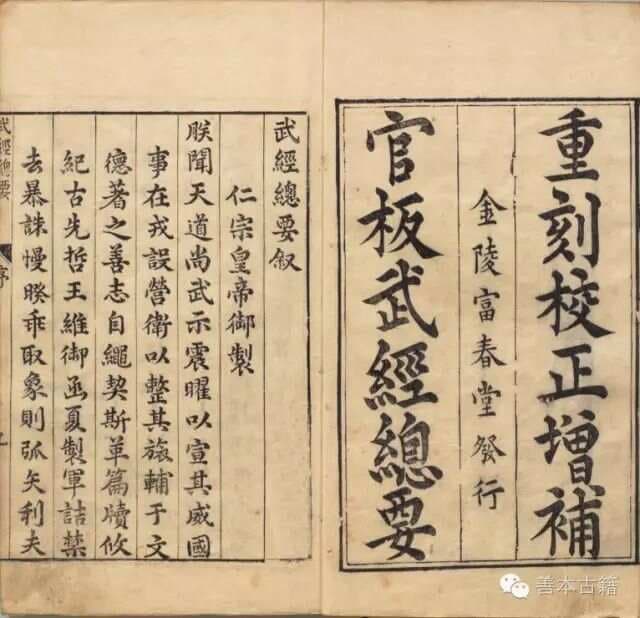 重刻校正增補
金陵富春堂發行
官板武經總要
武經總要叙
仁宗皇帝御製
朕聞天道尚武示震曜以宣其威國
事在戎設營衛以整其旅輔于文
德著之善志自繩契斯革篇牘攸
紀古先哲王維御函夏製軍詰禁
去暴誅慢暌乖取象則弧矢利夫
武經總要
序
善本古籍